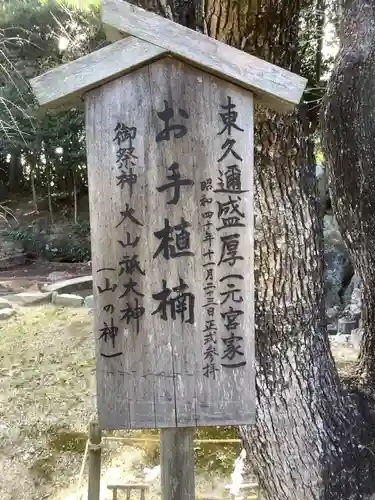 東久邇盛厚(元宮家)
昭和四十年十一月二三日正式参拝
お手植楠
御祭神 大山祇大神
(山の神)